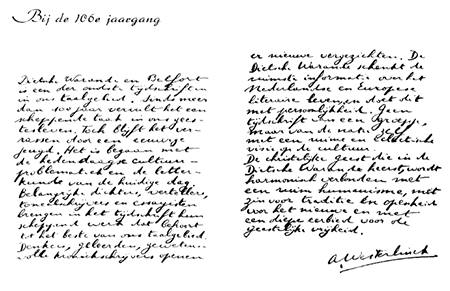 Bij de 106e jaargang
Dietsche Warande en Belfort
is een der oudste tijdschriften
in ons taalgebied. Sinds meer
dan 100 jaar vervult het een
scheppende taak in ons gees-
tesleven. Toch blijft het ver-
rassen door een eeuwige
jeugd. Het is begaan met
de hedendaagse cultuur-
problematiek en de letter-
kunde van de huidige dag.
Belangrijke dichters, vertellers,
toneelschrijvers en essayisten
brengen in het tijdschrift hun
scheppend werk dat behoort
tot het beste van ons taalgebied.
Denkers, geleerden, gewetens-
volle kroniekschrijvers openen
er nieuwe vergezichten. De
Dietsche Warande schenkt de
ruimste informatie over het
Nederlandse en Europese
literaire leven, en doet dit
met persoonlijkheid. Geen
tijdschrift van een groepje,
maar van de natie zelf
met een ruime en eclectische
visie op de cultuur.
De christelijke geest die in de
Dietsche Warande heerst, wordt
harmonisch verbonden met
een ruim humanisme, met
zin voor traditie en openheid
voor het nieuwe en met
een diepe eerbied voor de
geestelijke vrijheid.
A. Westerlinck